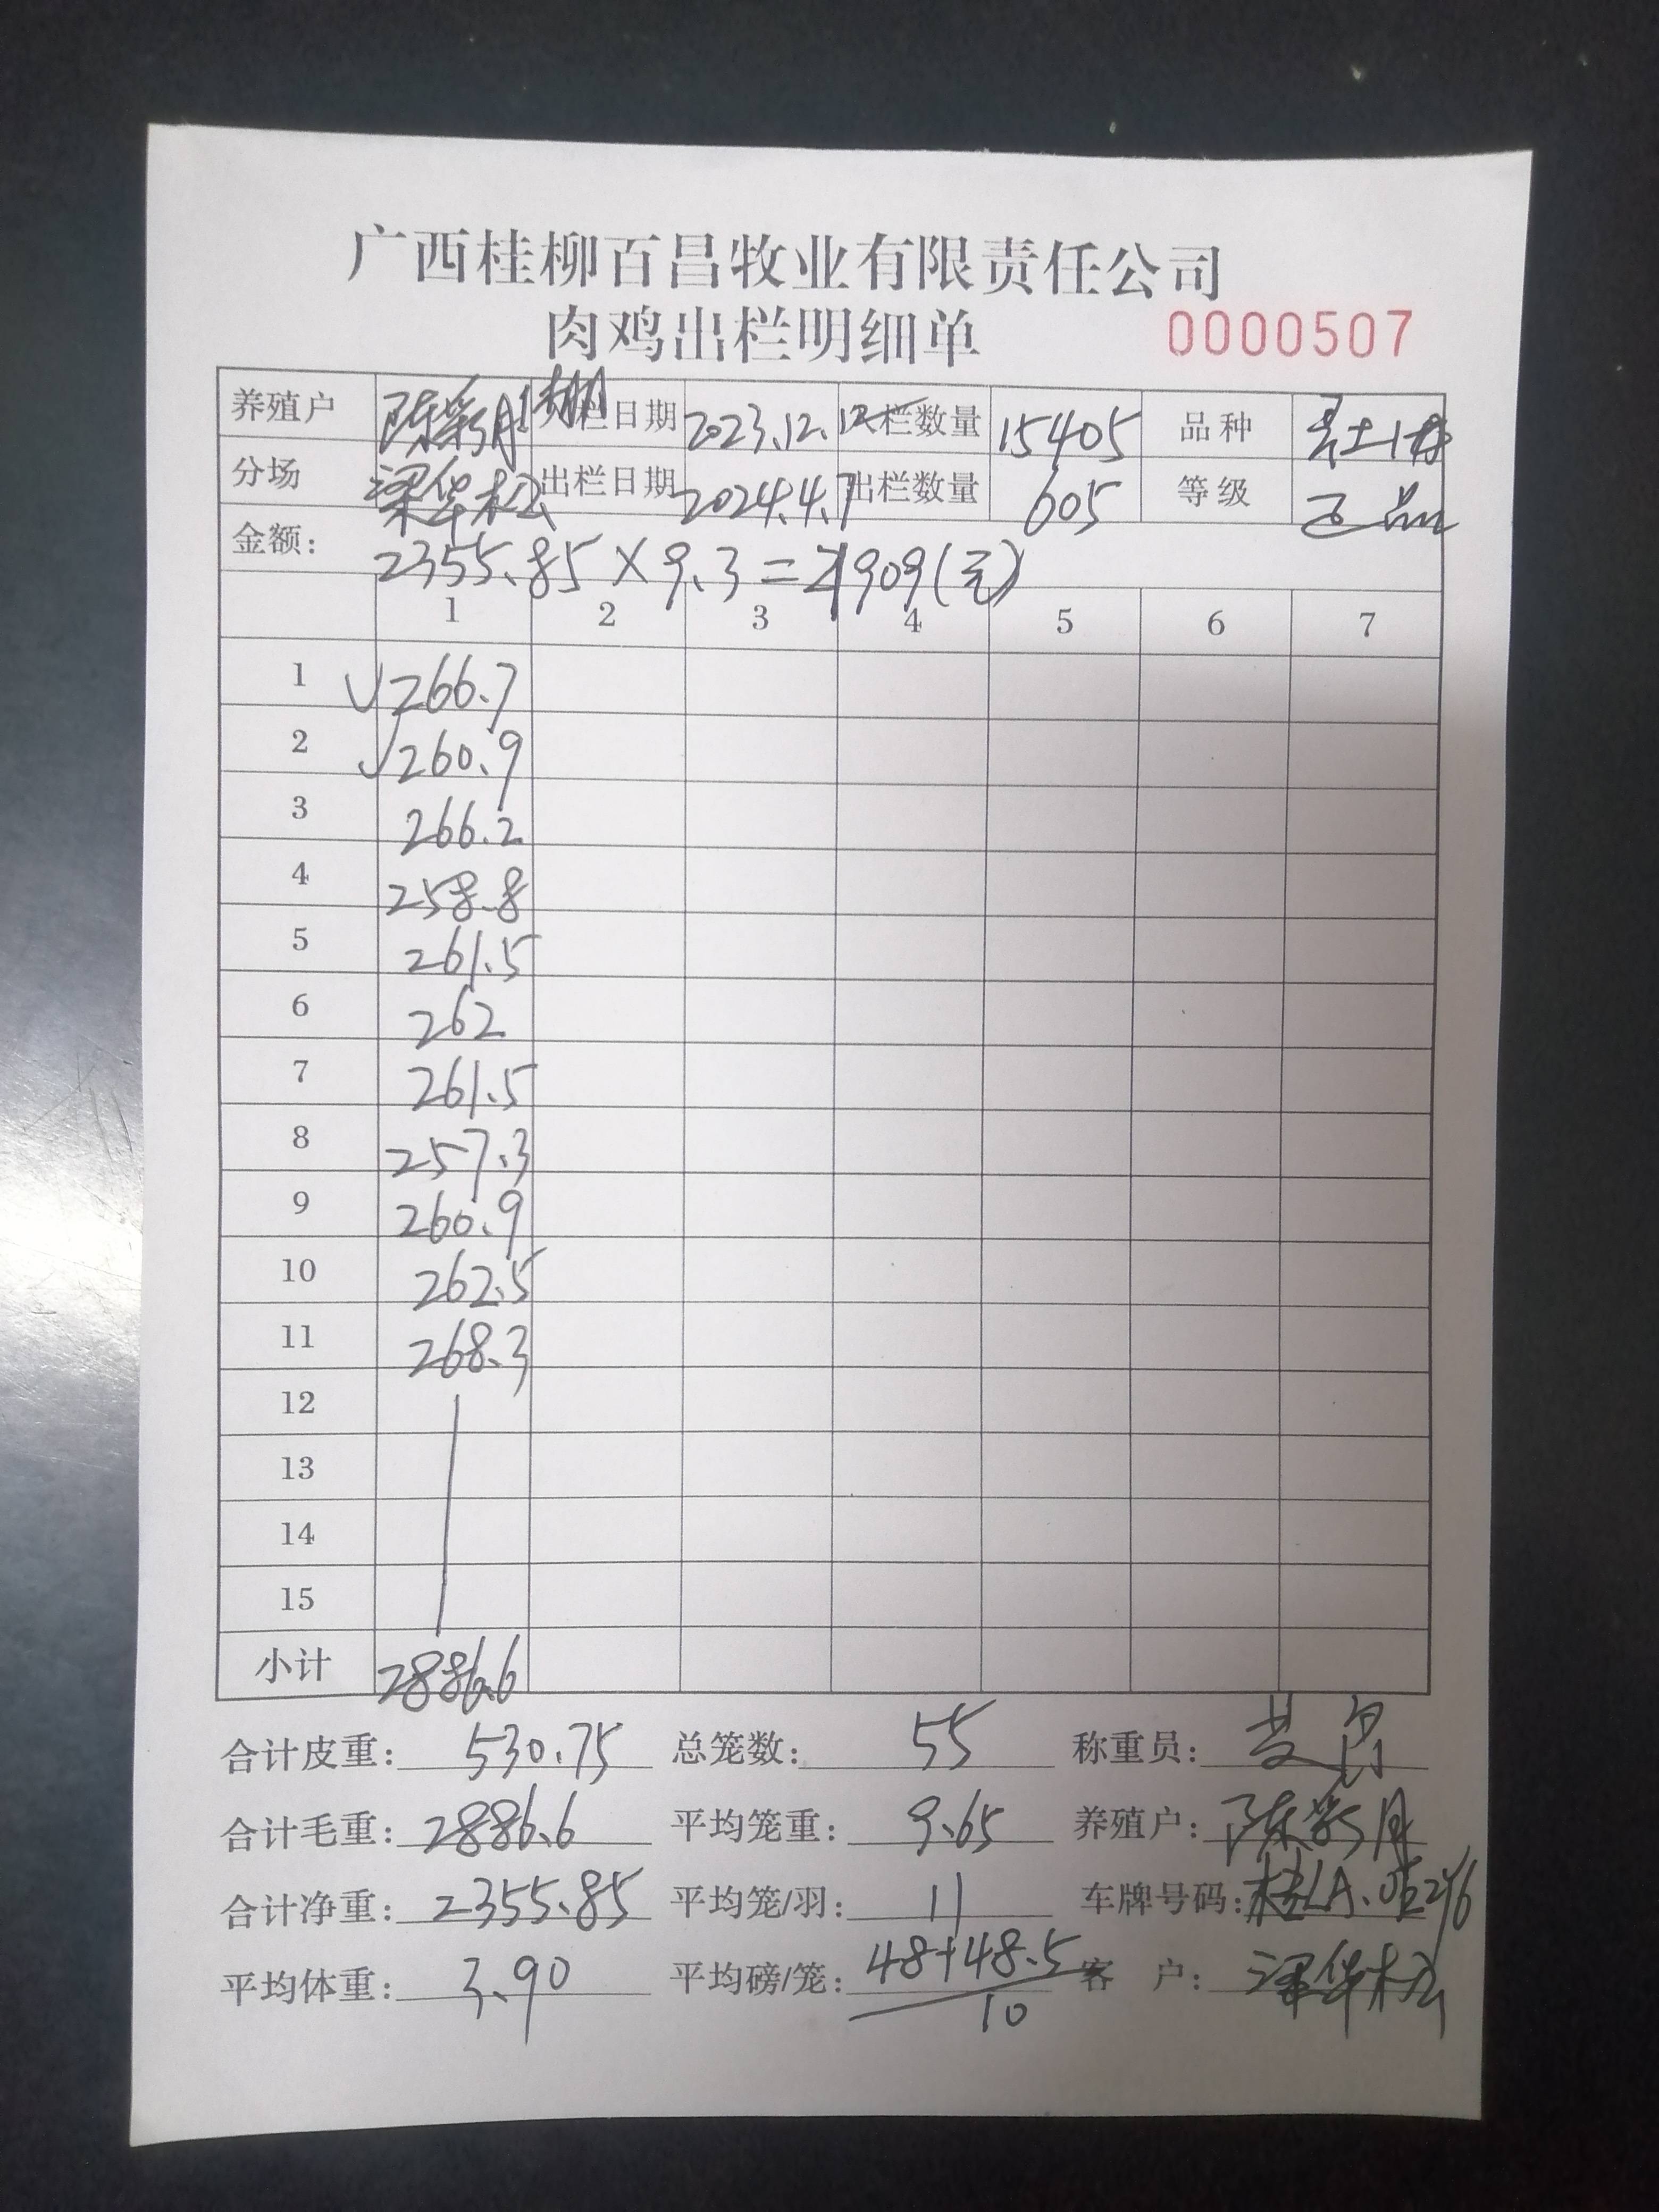 广西桂柳百昌牧业有限责任公司
肉鸡出栏明细单 0000507
养殖户 陈彩月1棚 栏日期 2023.12.12 栏数量 15405 品种
分场 梁华松 出栏日期 2024.4.7 出栏数量 605 等级 正品
金额: 2355.85×9.3=21909(元)
1 2 3 4 5 6 7
1 √266.7
2 √260.9
3 266.2
4 258.8
5 261.5
6 262
7 261.5
8 257.3
9 260.9
10 262.5
11 268.3
12
13
14
15
小计 2886.6
合计皮重: 530.75 总笼数: 55 称重员:
合计毛重: 2886.6 平均笼重: 9.65 养殖户: 陈彩月
合计净重: 2355.85 平均笼/羽: 11 车牌号码:
平均体重: 3.90 平均磅/笼: 48+48.5 客 户: 梁华松
10